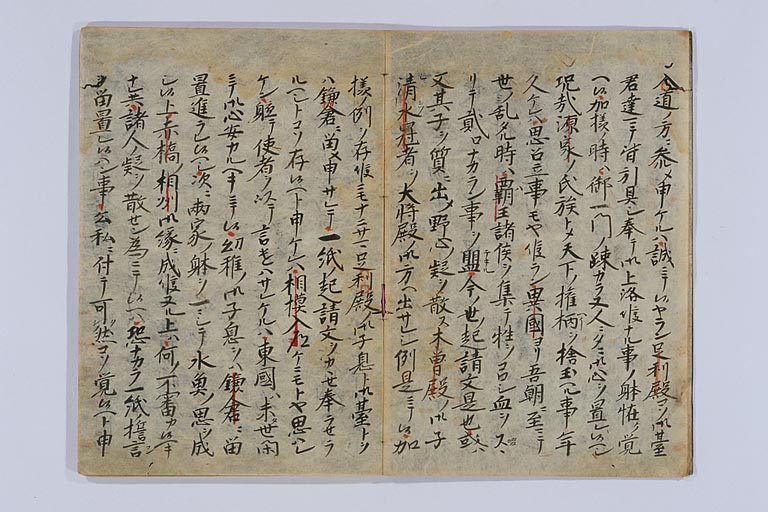 入道ノ方ニ参申ケルハ誠ニテ候ヤラン足利殿コソ御臺
君達ニテ皆引具シ奉テ御上洛候ナル事ノ躰怪ク覚
ヘ候加様ノ時ハ御一門ノ疎カラヌ人ニタニ御心ヲ置レ候ヘシ
况哉源家ノ氏族トシテ天下ノ権柄ヲ捨玉ヘル事年
久ケレハ思召立事モヤ候ラン異國ヨリ吾朝ニ至ニテ
世ノ乱タル時ハ覇王諸侯ヲ集テ牲ヲコロシ血ヲスヽ
リテ貳ロナカラン事ヲ盟今ノ世ノ起請文是也或ハ
又其子ヲ質ニ出メ野心ノ疑ヲ散ス木曽殿ノ御子
清水冠者ヲ大将殿ノ御方ヘ出サレシ例是ニテ候加
様ノ例ヲ存候ニモナニサニ足利殿ノ御子息ト御臺トヲ
ハ鎌倉ニ留メ申サレテ一紙ノ起請文ヲカセ奉ラセラ
ルヘシトコソ存候ヘト申ケレハ相模入道ケニモトヤ思ハレ
ケン聴テ使者ヲ以テ言セハサレケルハ東國ハ未世閑
ニテ御心安カルヘキニテ候幼稚ノ御子息ヲハ鎌倉ニ留
置進ラレ候ヘシ次ニ両家ノ躰ヲ一ニシテ水魚ノ思ヲ成
レ候上赤橋相州御縁ニ成候又ル上ハ何ノ不審カ候ヘキ
ナレ共諸人ノ疑ヲ散セン為ニテ候ヘハ恐ナカラ一紙ノ誓言
ヲ留置レ候ヘン事公私ニ付テ可然コソ覚候ヘト申